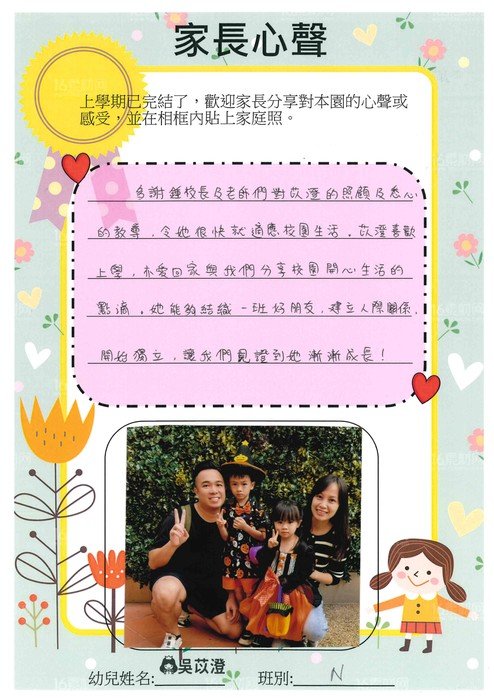 家長心聲
上學期已完結了，歡迎家長分享對本園的心聲或
感受，並在相框內貼上家庭照。
多謝鍾校長及老師們對苡澄的照顧及悉心
的教導，令她很快就適應校園生活。苡澄喜歡
上學，亦愛回家與我們分享校園開心生活的
點滴。她能夠結識一班好朋友，建立人際關係，
開始獨立，讓我們見證到她漸漸成長！
幼兒姓名: 吳苡澄 班別: N